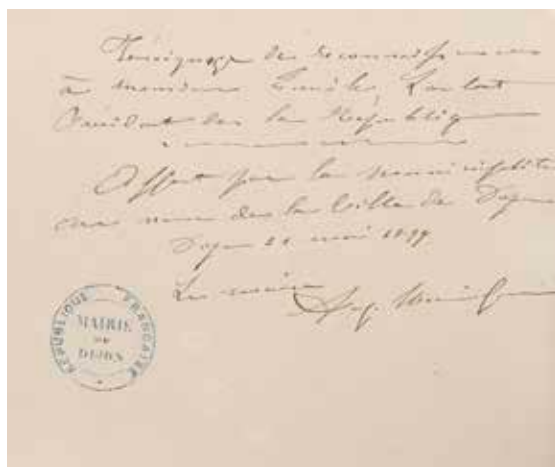 Témoignage de reconnaissance
à Monsieur Emile Loubet
Président de la République
Offert par la municipalité
au nom de la Ville de Dijon
Dijon 21 mai 1899
Le maire
RÉPUBLIQUE FRANÇAISE
MAIRIE
DE
DIJON